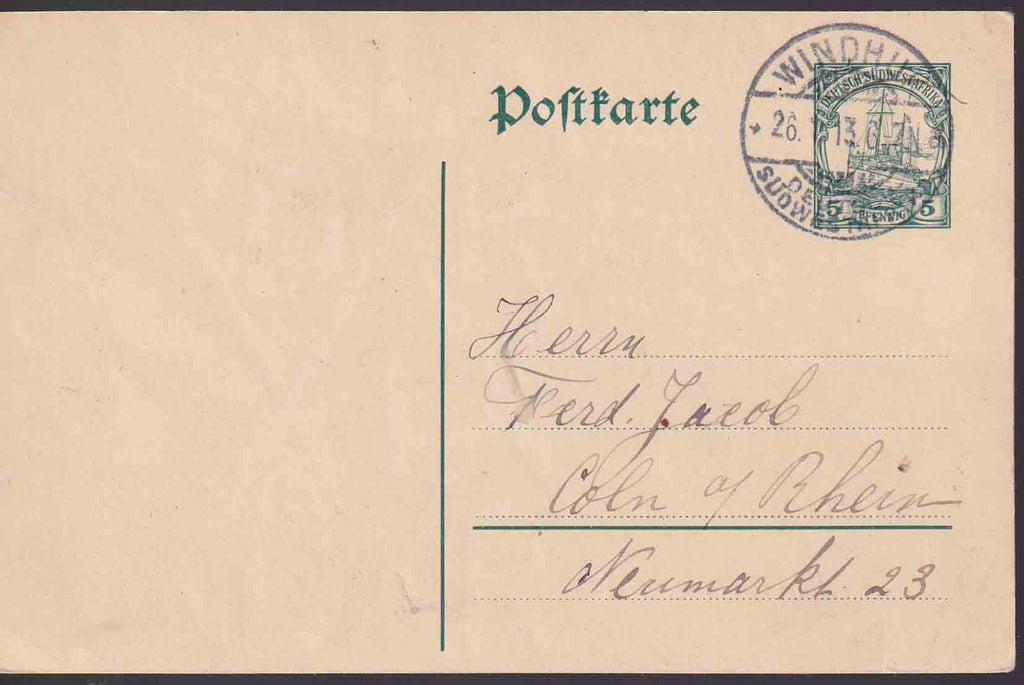 Postkarte
WINDHU
26. 13. 6-7N
SÜDWESTA
DEUTSCH-SÜDWESTAFRIKA
5 PFENNIG 5
Herrn
Ferd. Jacob
Coln a/ Rhein
Neumarkt. 23